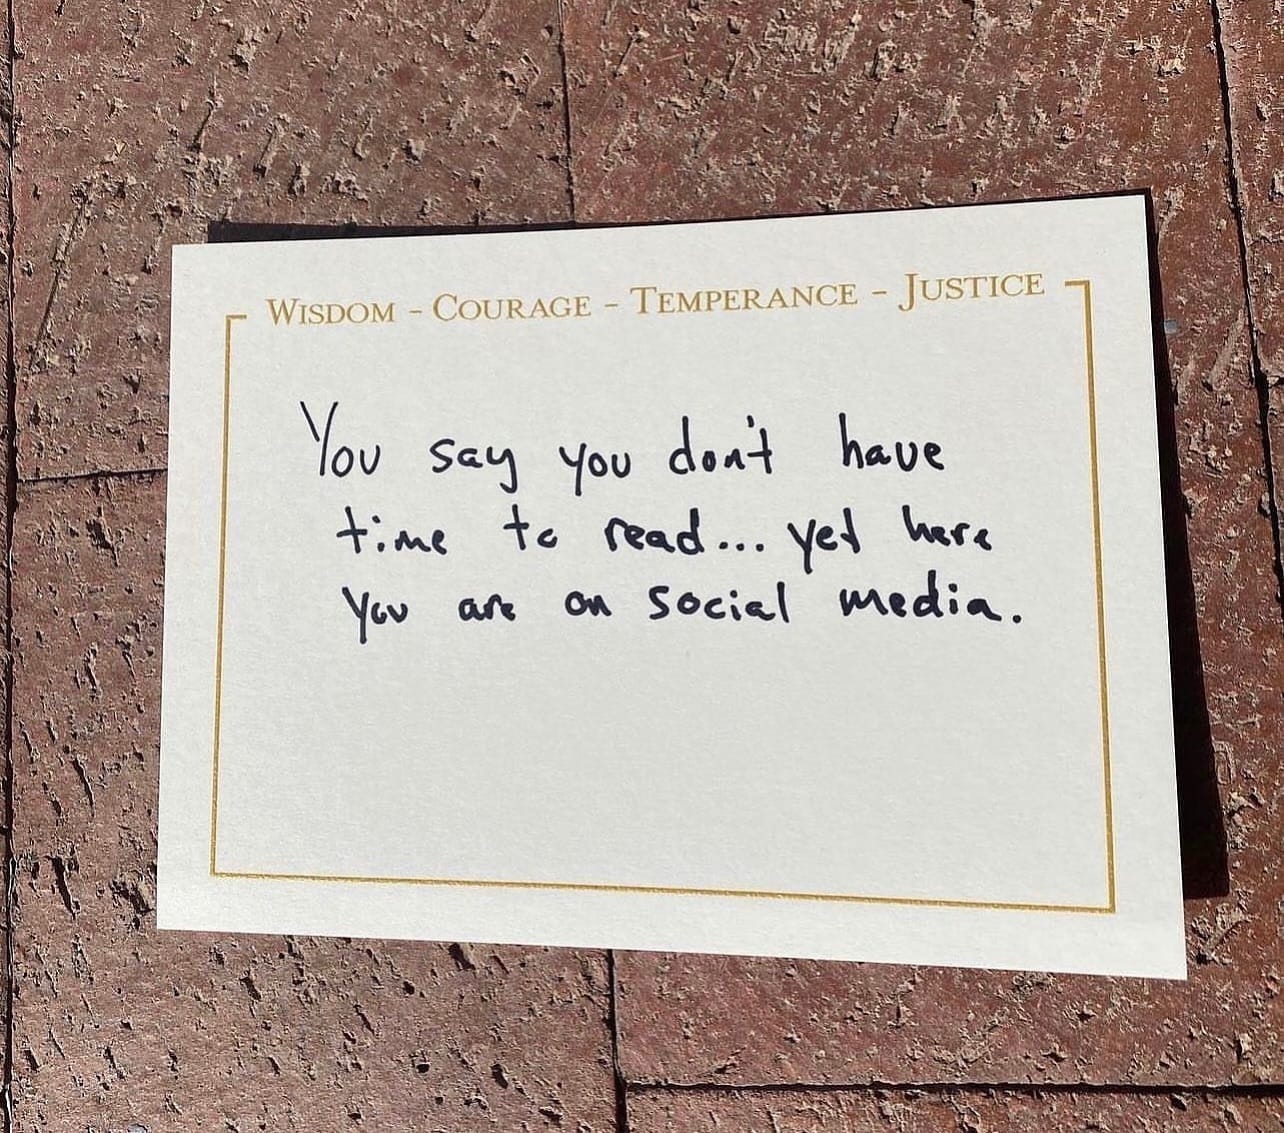 WISDOM - COURAGE - TEMPERANCE - JUSTICE
You say you don't have
time to read... yet here
you are on social media.